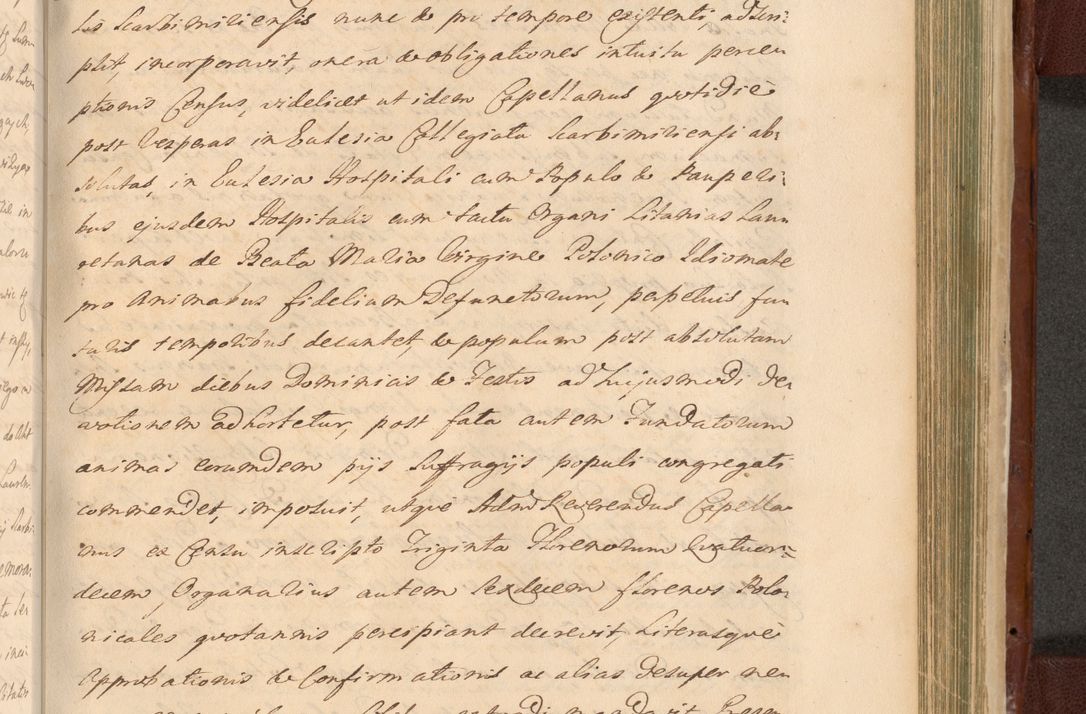 lis Scarbimiriensis nunc & pro tempore existenti, adscri:
psit, incorporavit, onera & obligationes intuitu percep
ptionis Census, videlicet ut idem Capellanus quotidiè
post Vesperas in Ecclesia Collegiata Scarbimiriensi ab:
solutas, in Ecclesia Hospitali cum Populo & Pauperi:
bus ejusdem Hospitalis cum tactu Organi Litanias Lau
retanas de Beata Maria Virgine Polonico Idiomate
pro Animabus fidelium Defunctorum, perpetuis fu
turis temporibus decantet, & populum post absolutam
Missam diebus Dominicis & Festis ad hujusmodi De:
votionem adhortetur, post fata autem Fundatorum
animas eorundem pijs Suffragijs populi congregati
commendet, imposuit, utque Admd Reverendus Capella
nus ex Censu inscripto Triginta Florenorum Quatuor:
decem, Organarius autem Sexdecem florenos Polo:
nicales quotannis percipiant decrevit, Literasquè
Approbationis & Confirmationis ac alias desuper nec